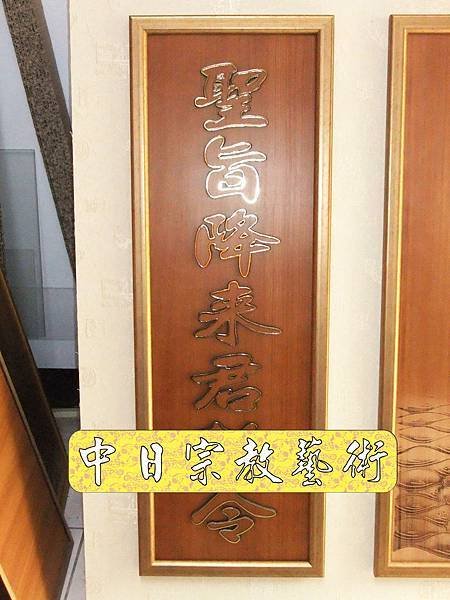 聖旨降来君
令
中日宗教藝術